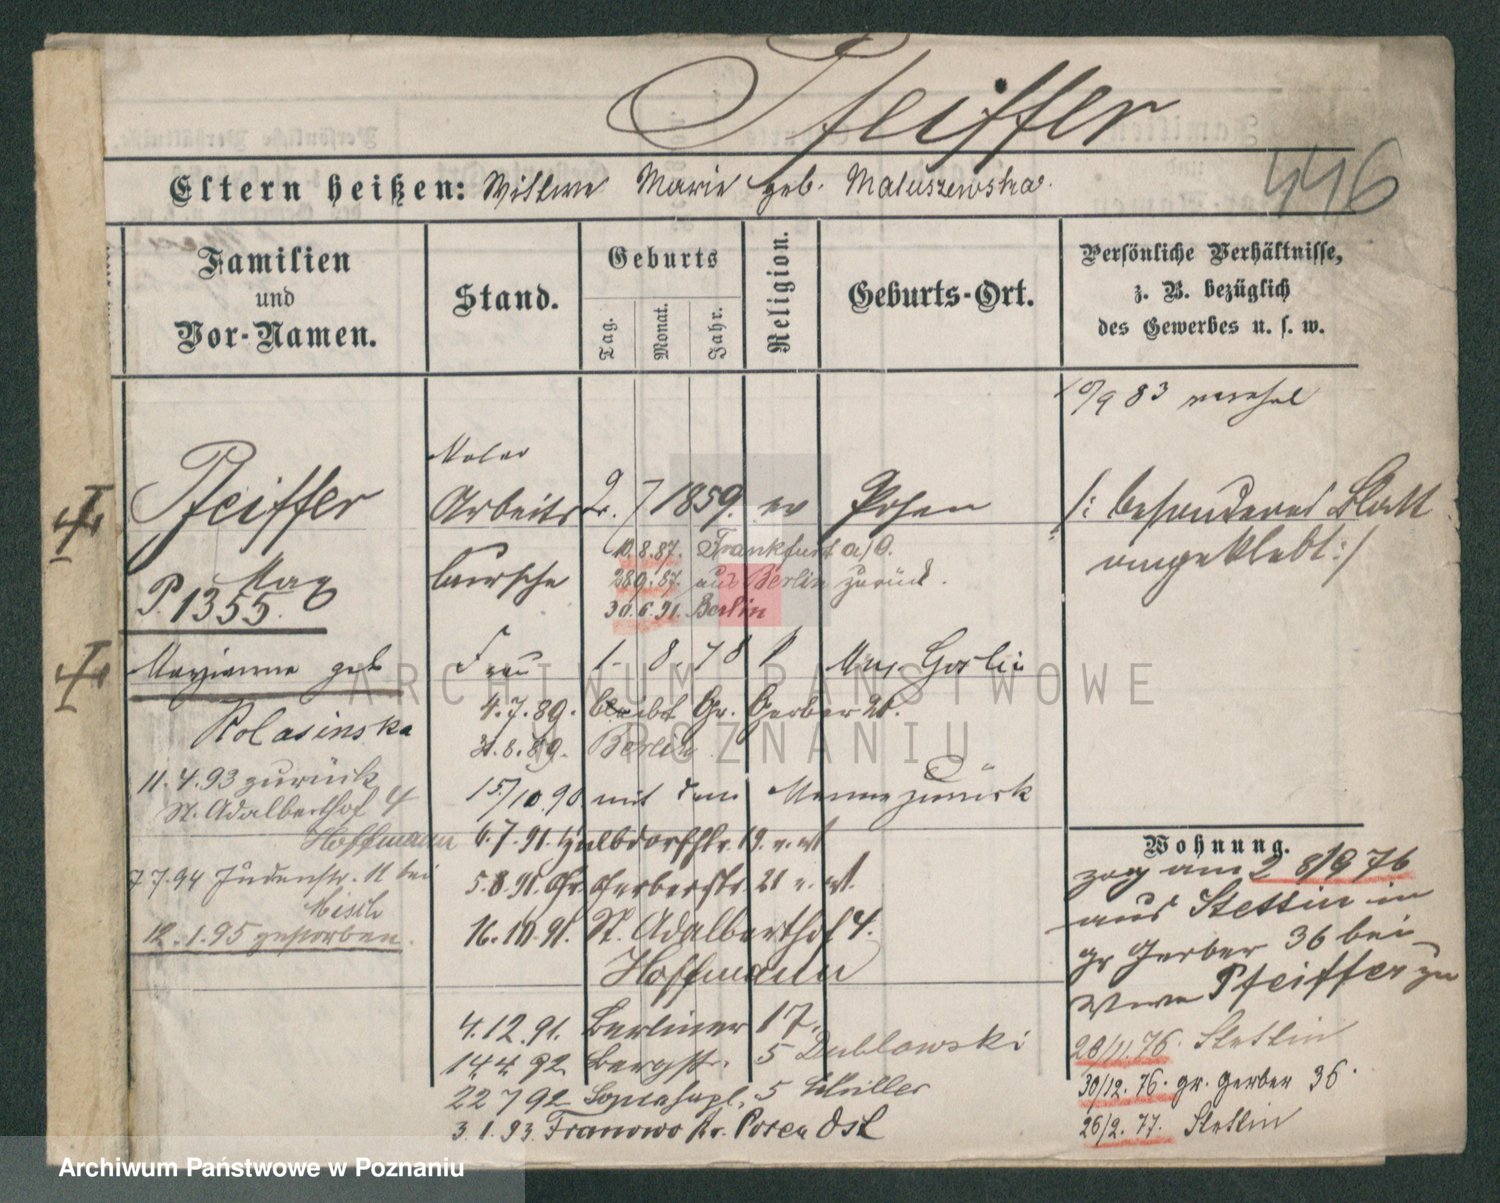 Pfeiffer
446
Eltern heißen: Wittwe Marie geb. Matuszewska.
Familien und Vor-Namen.
Stand.
Geburts
Tag.
Monat.
Jahr.
Religion.
Geburts-Ort.
Persönliche Verhältnisse, z. B. bezüglich des Gewerbes u. s. w.
Maler
Pfeiffer Arbeits 2. 7 1859. ev Posen
Max bursche
P. 1355.
10.8.87. Frankfurt a/O.
28.9.87. aus Berlin zurück.
30.6.91. Berlin
/: besonderes Blatt
angeklebt :/
Marianna geb Frau 1. 8. 78 Goslin
Kolasinska
4.7.89. bleibt Gr. Gerber 21.
31.8.89. Berlin
15/10 90 mit dem Manne zurück
6.7.91. 19.
5.8.91. Gr. Gerberstr. 21
16.10.91. St. Adalberthof 4.
Hoffmann
4.12.91. Berliner 17.
14.4.92 Bergstr. 5 Dublowski
22 7 92 5
3.1.93. Franowo Kr. Posen Ost
11.4.93 zurück
St. Adalberthof 4
Hoffmann
7 7.94 Judenstr. 11 bei
12.1.95 gestorben.
Wohnung.
zog am 2 8/9 76
aus Stettin in
gr Gerber 36 bei
Wwe Pfeiffer zu
28/11. 76. Stettin
30/12. 76. gr. Gerber 36.
26/2. 77. Stettin
ARCHIWUM PAŃSTWOWE
W POZNANIU
Archiwum Państwowe w Poznaniu